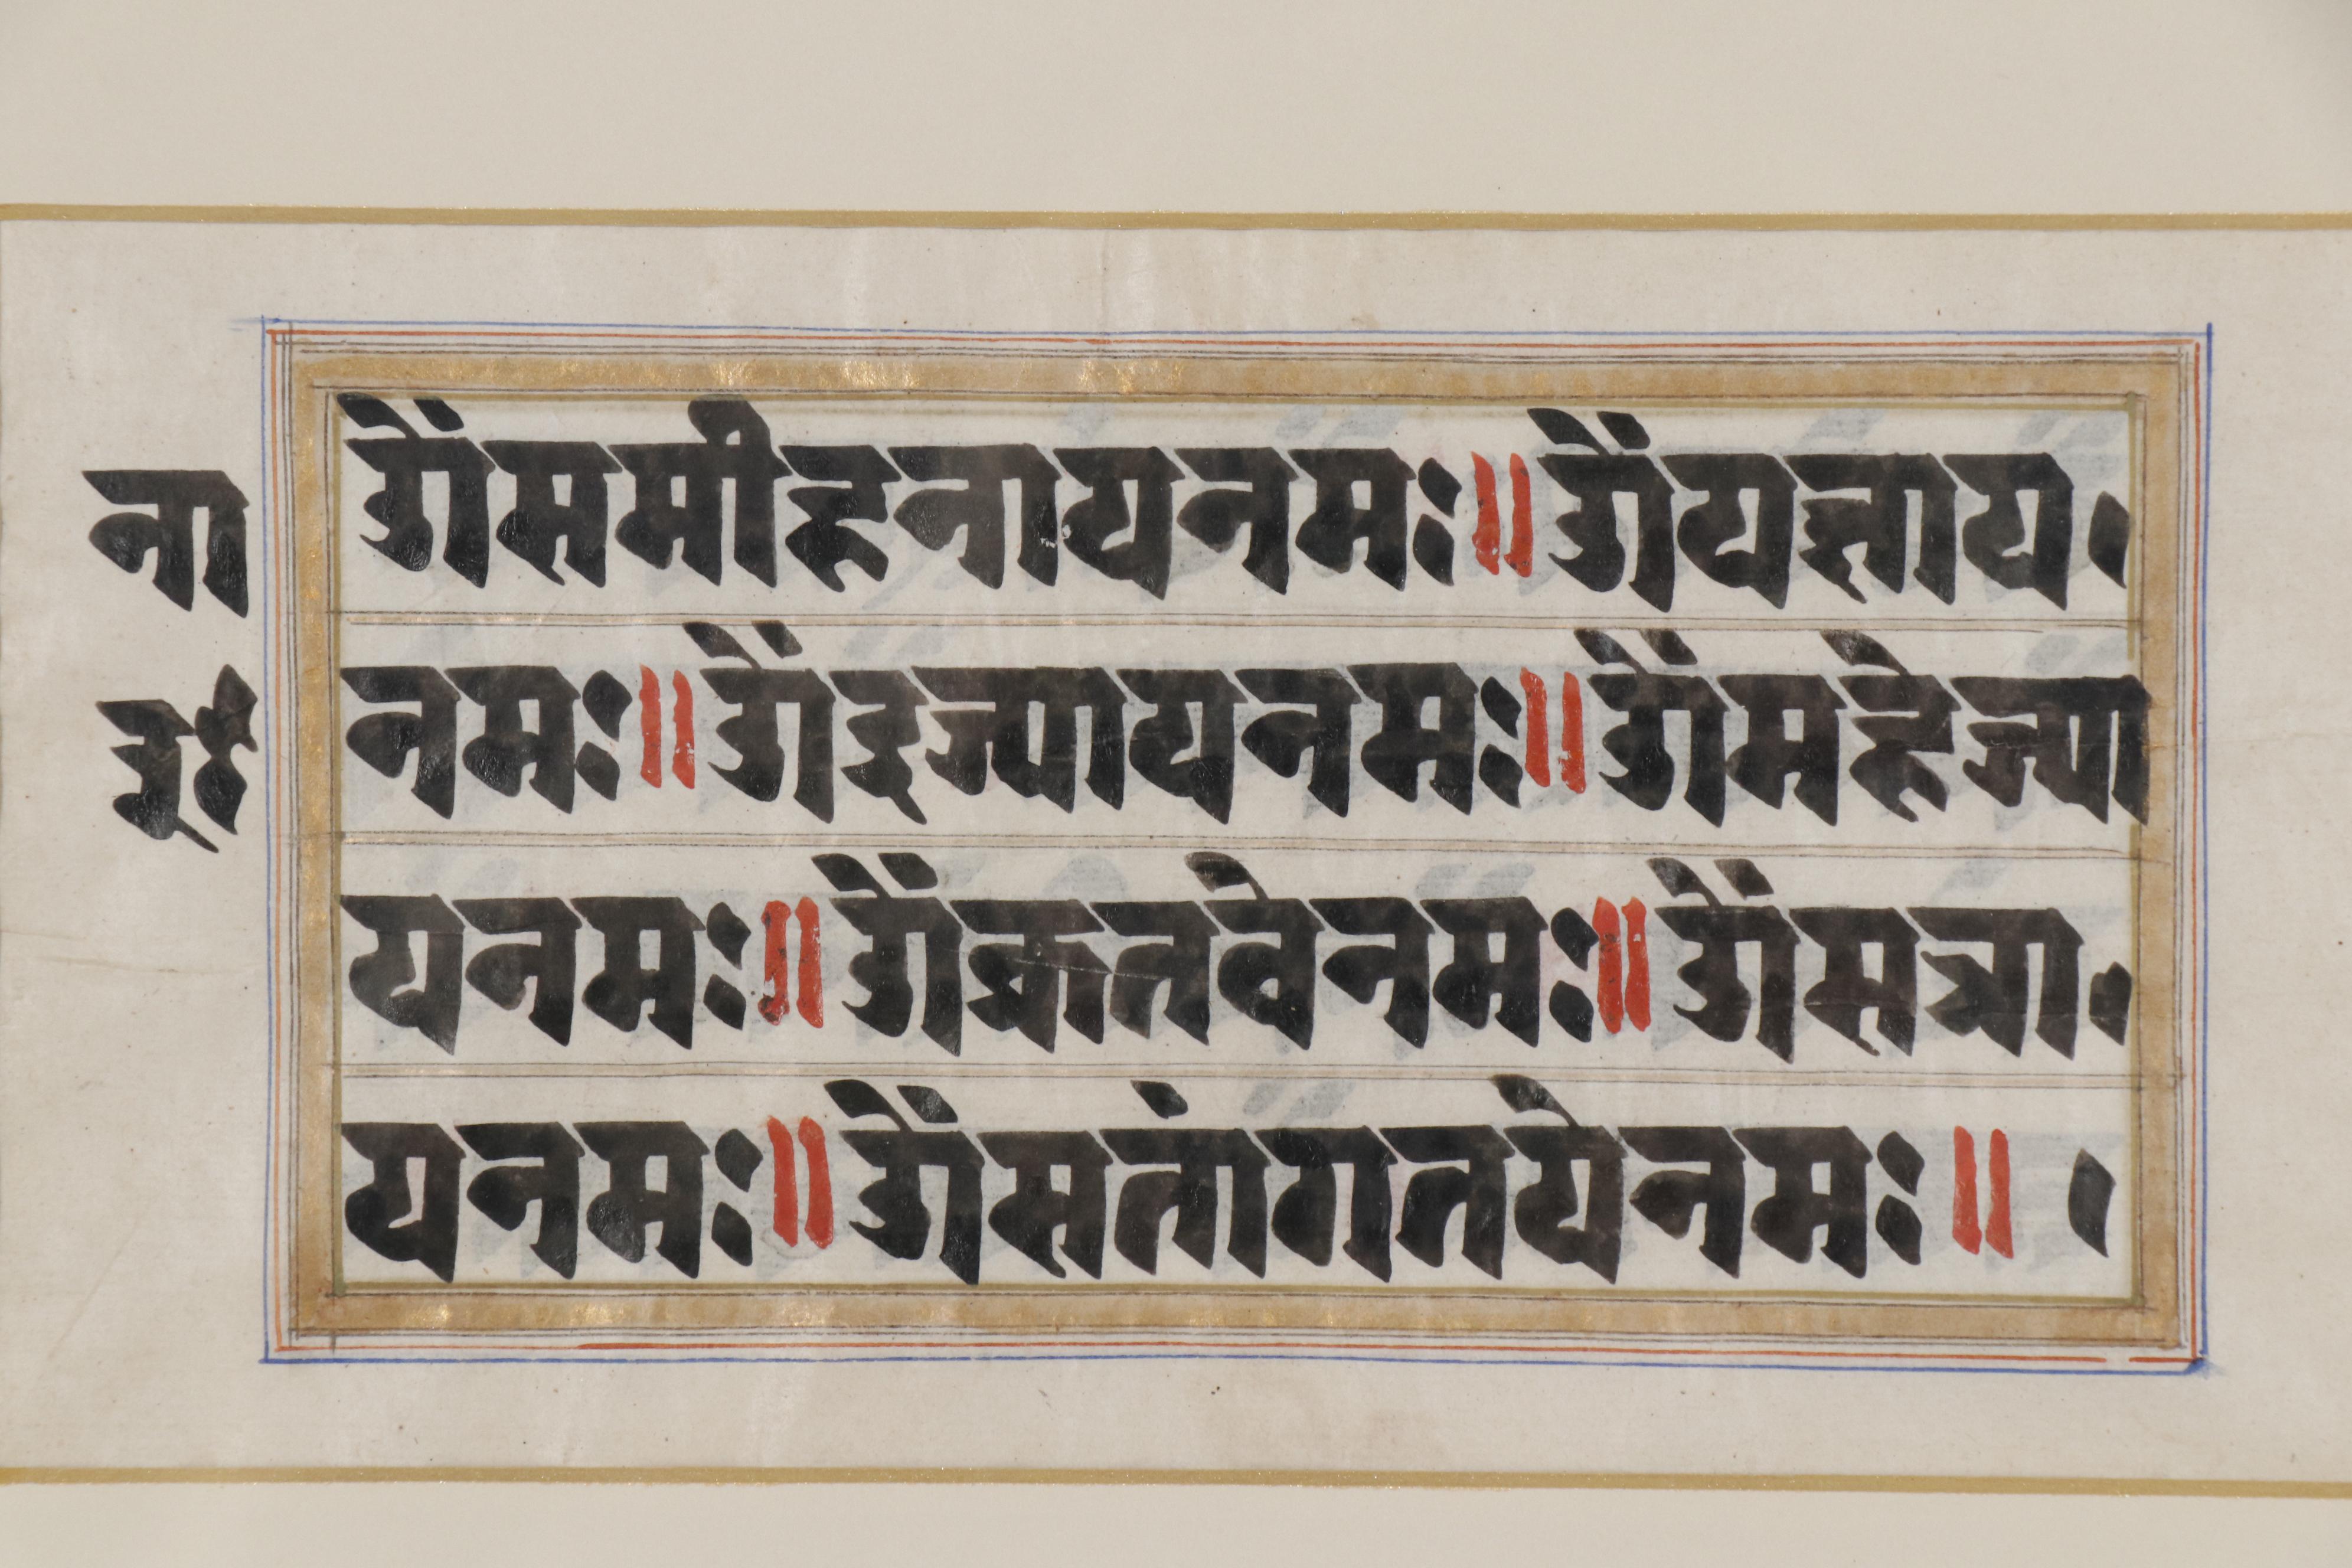 ना
३४
ॐसमीहनायनमः॥ॐयज्ञाय॰
नमः॥ॐइज्यायनमः॥ॐमहेज्या
यनमः॥ॐक्रतवेनमः॥ॐसत्रा॰
यनमः॥ॐसतांगतयेनमः॥ ।